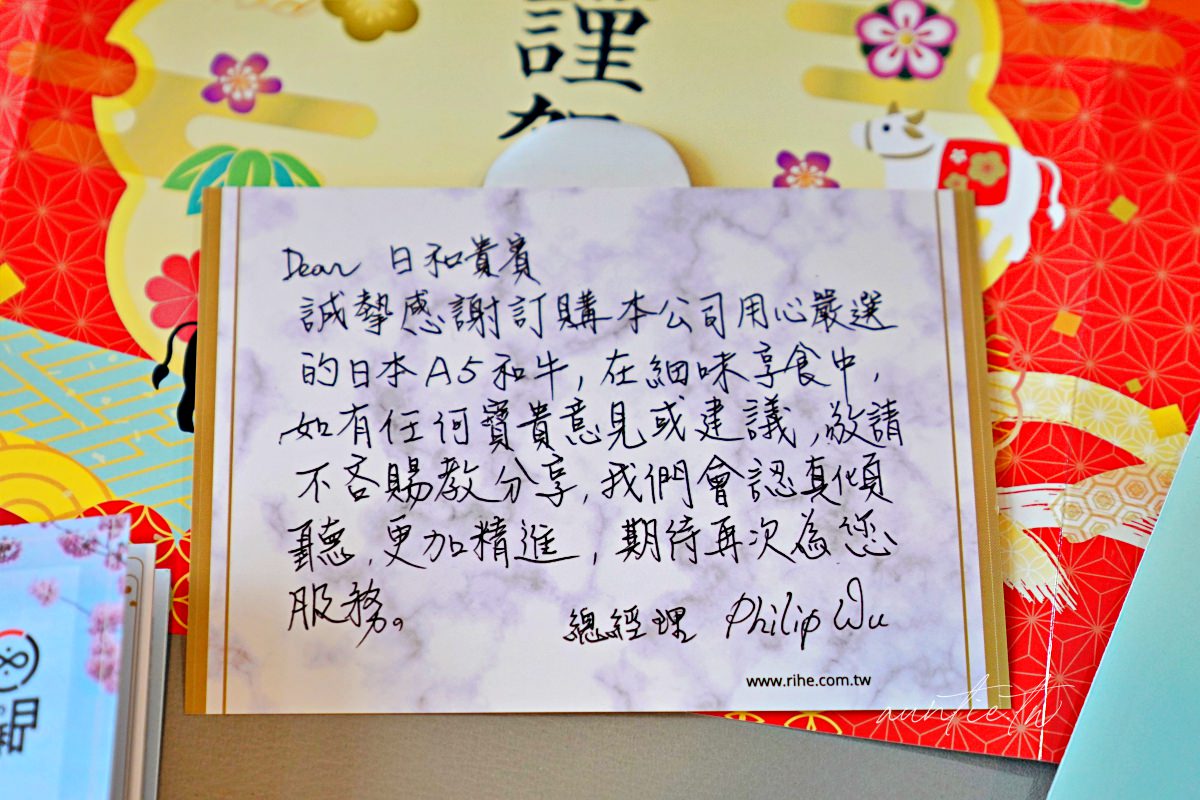 謹
Dear 日和貴賓
誠摯感謝訂購本公司用心嚴選
的日本A5和牛，在細味享食中，
如有任何寶貴意見或建議，敬請
不吝賜教分享，我們會認真傾
聽，更加精進，期待再次為您
服務。
總經理 Philip Wu
www.rihe.com.tw